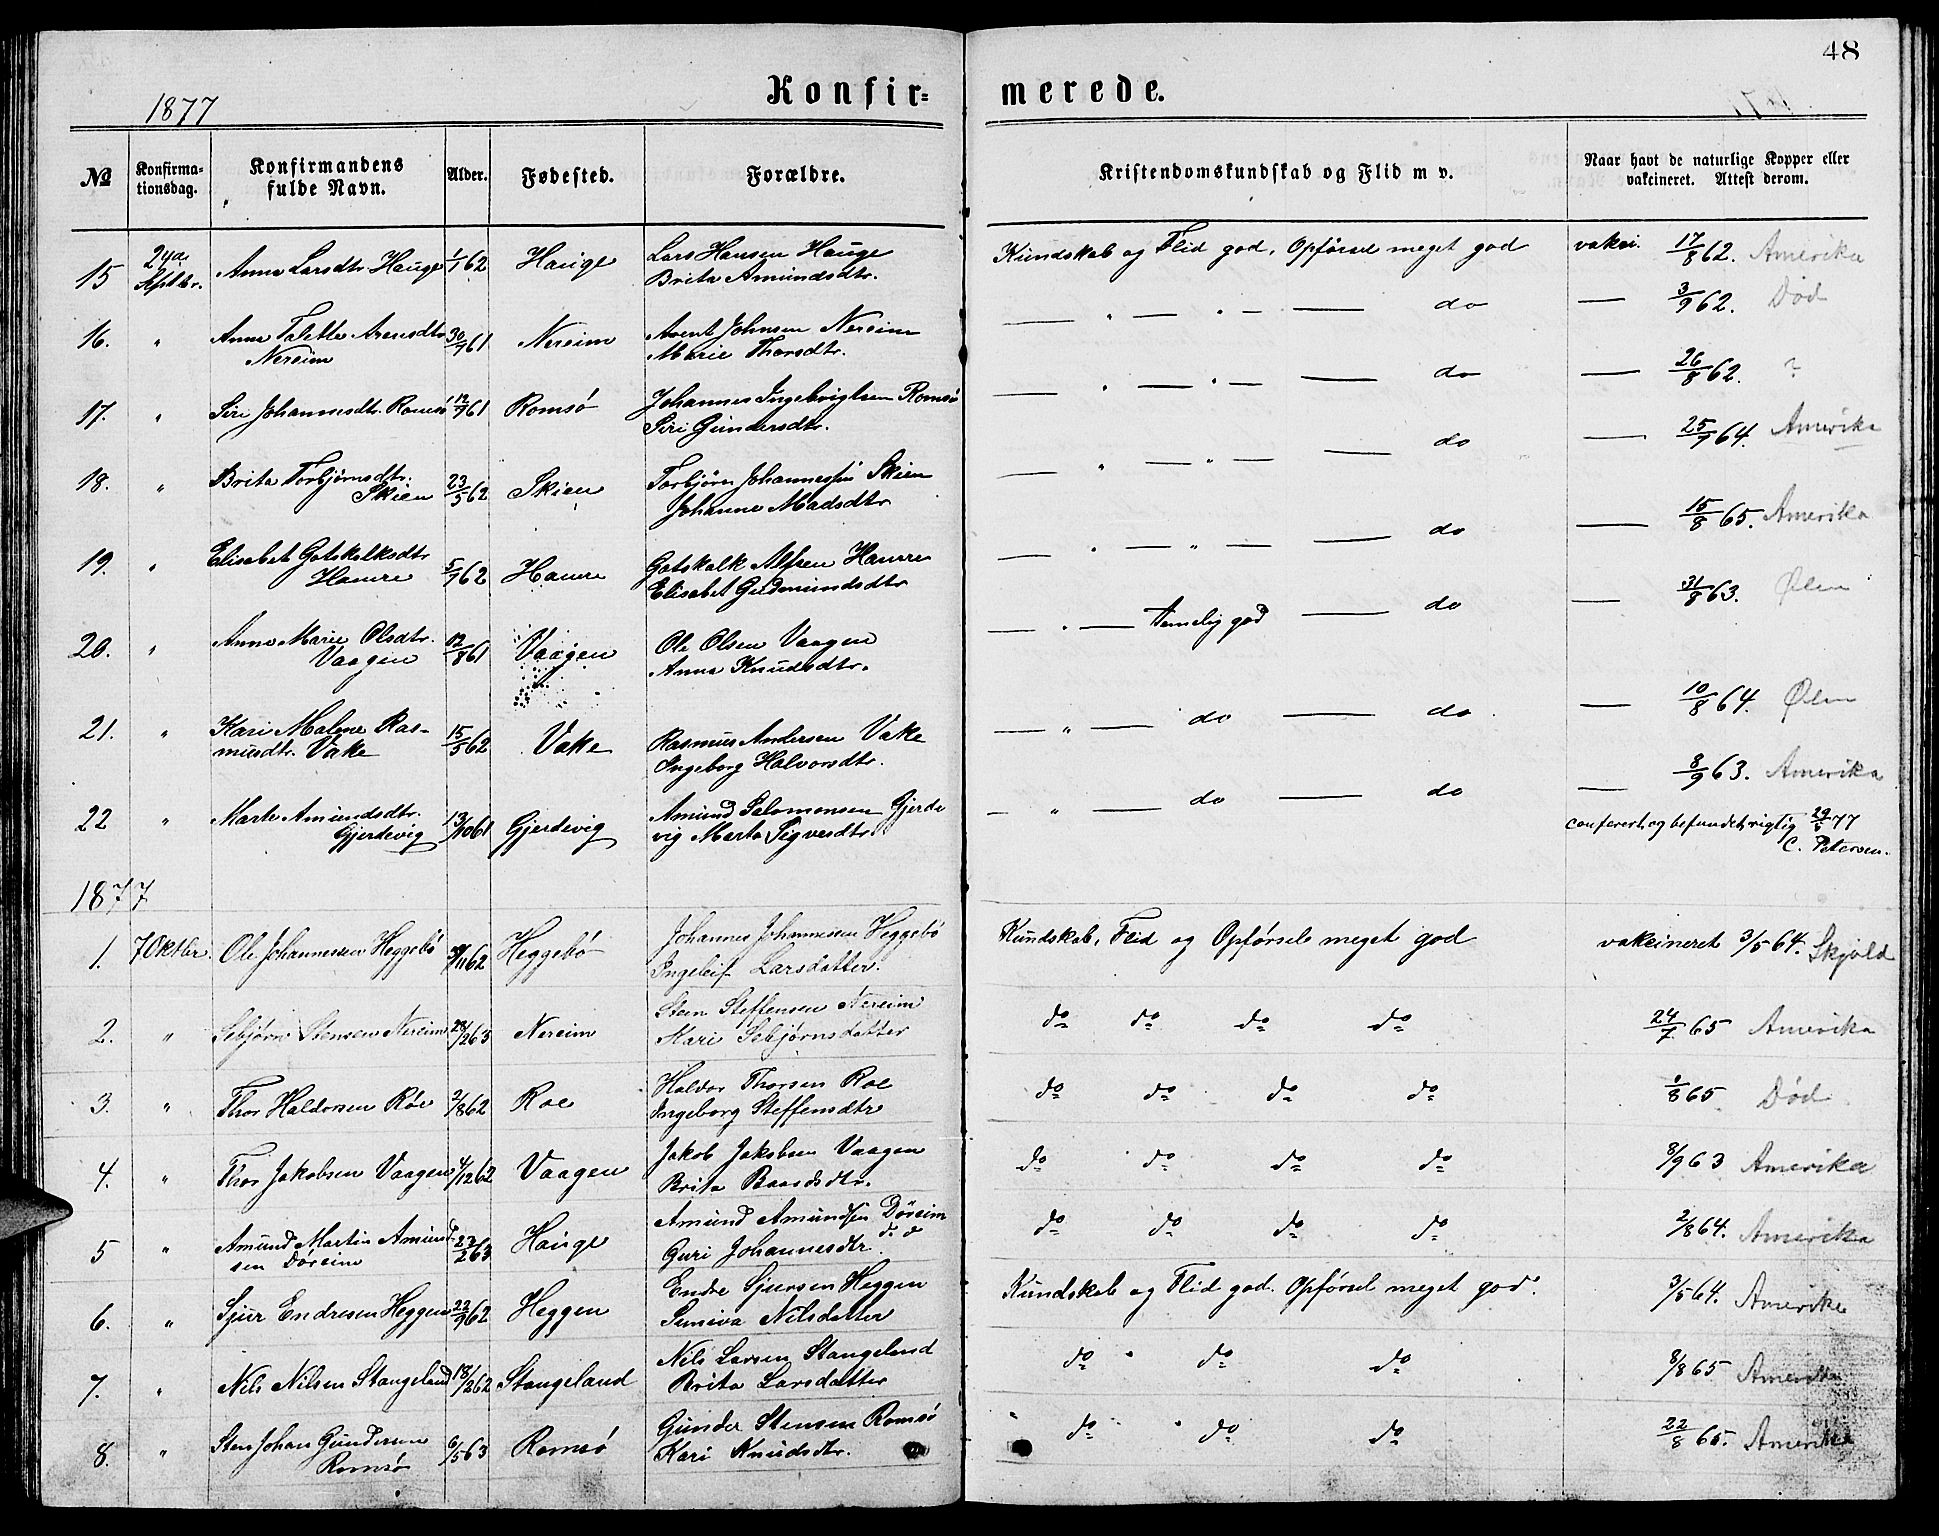 48
1877
Konfir= merede.
№ Konfirma-tionsdag. Konfirmandens fulde Navn. Alder. Fødested. Forældre. Kristendomskundskab og Flid m v. Naar havt de naturlige Kopper eller vakcineret. Attest derom.
15 24de Septbr. Anna Larsdtr Hauge 1/7 62 Hauge Lars Hansen Hauge Kundskab og Flid god, Opførsel meget god vakci. 17/8 62. Amerika
Brita Amundsdtr.
16. " Anna Talette Arensdtr 30/9 61 Nereim Arent Johnsen Nereim — " — " — — do — 3/9 62. Død
Nereim Marie Thorsdtr.
17. " Siri Johannesdtr. Romsø 12/9 61 Romsø Johannes Ingebrigtsen Romsø — " — " — — do — 26/8 62. ?
Siri Gundersdtr.
18. " Brita Torbjørnsdtr. 23/5 62 Skien Torbjørn Johannessen Skien — " — " — — do — 25/9 64. Amerika
Skien Johanne Madsdtr
19. " Elisabet Gotskalksdtr 5/7 62 Haure Gotskalk Alfsen Haure — " — " — — do — 15/8 65. Amerika
Haure Elisabet Gudmundsdtr
20. " Anna Marie Olsdtr. 12/8 61 Vaagen Ole Olsen Vaagen — " — temelig god — do — 31/8 63. Ølen
Vaagen Anna Knudsdtr.
21. " Kari Malene Ras- 15/5 62 Vake Rasmus Andersen Vake — " — do — do — 10/8 64. Ølen
musdtr. Vake Ingeborg Halvorsdtr.
22 " Marte Amundsdtr. 13/10 61 Gjerdevig Amund Salomonsen Gjerde — " — do — do — 8/9 63. Amerika
Gjerdevig vig Marta Sigvesdtr. conferert og befundet rigtig 77
C. Petersen.
1877
1. 7 Oktbr. Ole Johannessen Heggebø /11 62 Heggebø Johannes Johannesen Heggebø Kundskab, Flid og Opførsel meget god vakcineret 3/5 64. Skjold
Ingeleif Larsdatter.
2. " Sebjørn Stensen Nereim 28/2 63 Nereim Sten Steffensen Nereim do do do do 24/7 65 Amerika
Mari Sebjørnsdatter
3. " Thor Haldorsen Røe 2/8 62 Roe Haldor Thorsen Roe do do do do 1/8 65 Død
Ingeborg Steffensdtr
4. " Thor Jakobsen Vaagen 4/12 62 Vaagen Jakob Jakobsen Vaagen do do do do 8/9 63 Amerika
Brita Baardsdtr.
5 " Amund Martin Amund- 27/2 63 Hauge Amund Amundsen Døreim do do do do 2/8 64. Amerika
sen Døreim Guri Johannesdtr do
6. " Sjur Endresen Heggen 22/9 62 Heggen Endre Sjursen Heggen Kundskab og Flid god. Opførsel meget god. 3/5 64. Amerika
Suniva Nilsdatter
7. " Nils Nilsen Stangeland 18/2 62 Stangeland Nils Larsen Stangeland do " do do 8/8 65 Amerika
Brita Larsdatter
8. " Sten Johan Gundersen 6/5 63 Romsø Gunder Stensen Romsø do " do do 22/8 65. Amerika
Romsø Kari Knudsdtr.